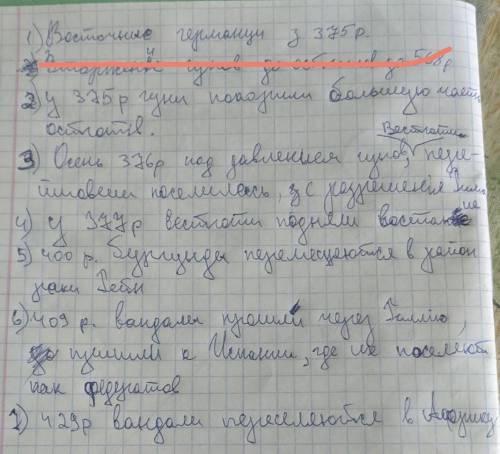 1) Восточные германци з 375р.
2) У 375р гуни покорили большую часть
остготів.
Вестготи
3) Осень 376р под давлением гунов, пере-
йшовши поселились, з с разрешения
4) У 377р вестготи подняли восстание
5) 400 р. Бургунды перемещаются в район
реки Рейн
6) 409 р. вандалы прошли через Галлию,
пришли к Испании, где их поселяют
как федератов
7) 429р вандали переселяются в Африку